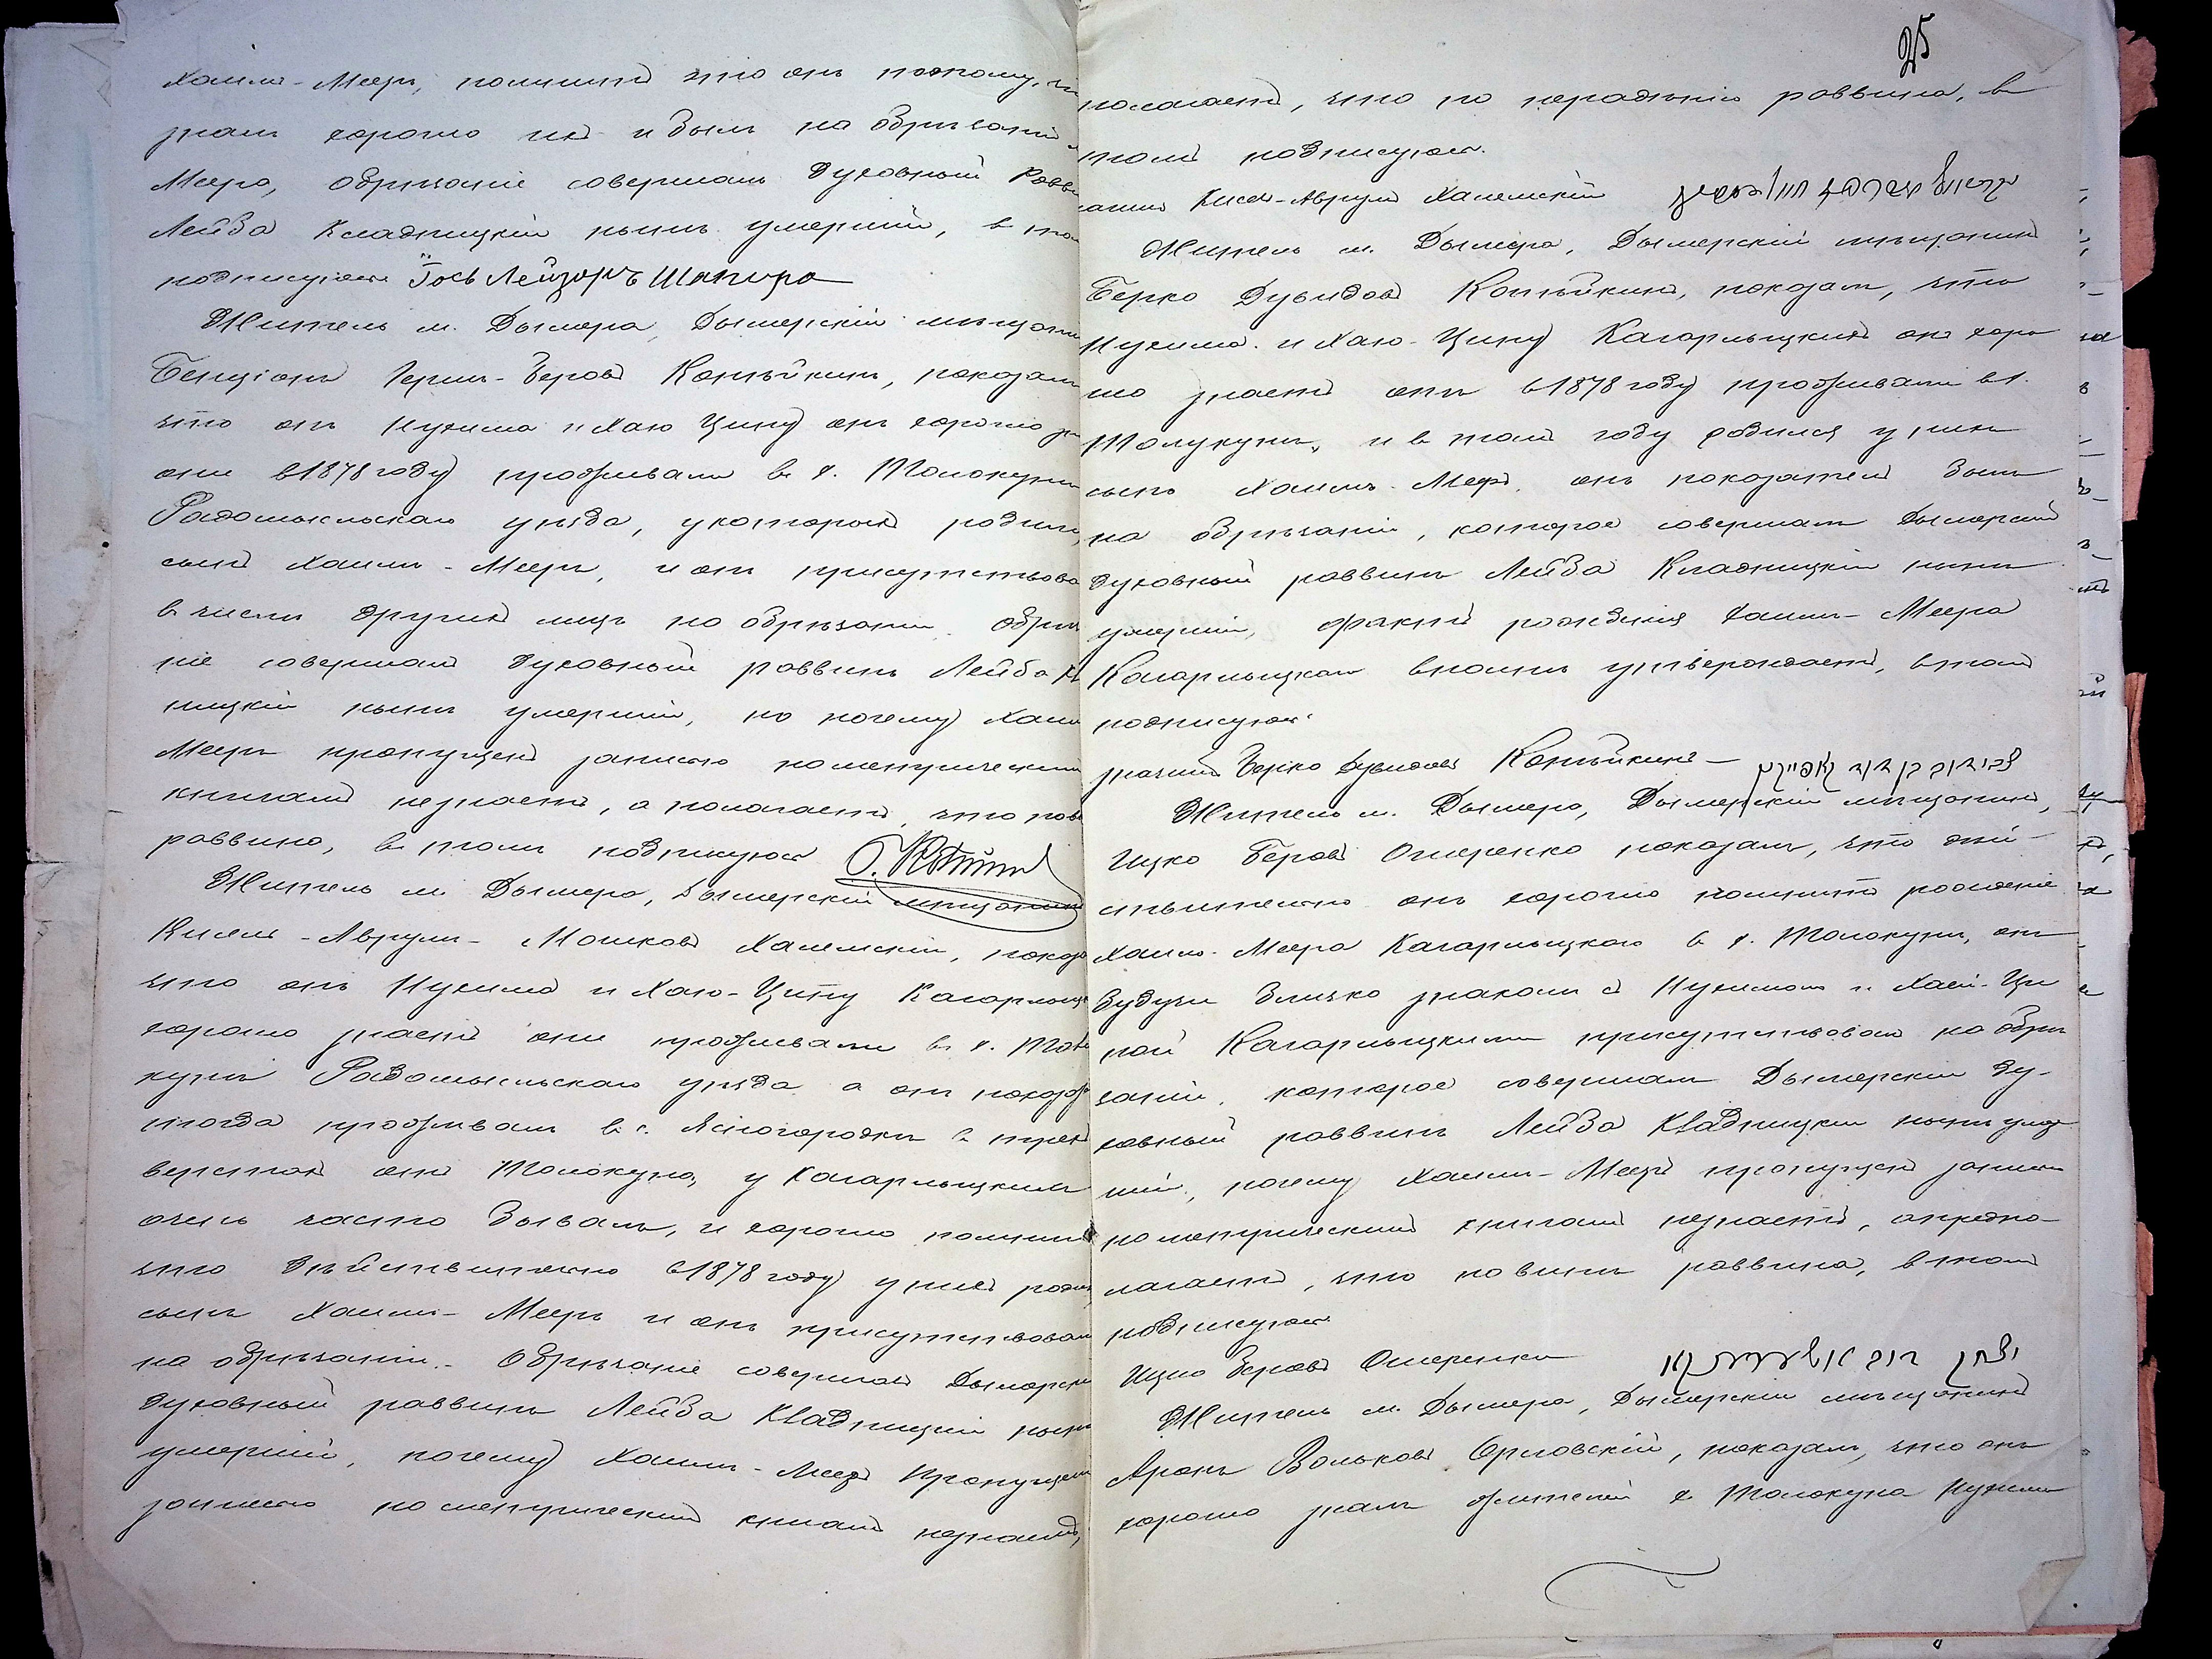 Хаимъ-Мееръ, помнитъ что онъ потому, ч
зналъ хорошо ихъ и былъ на обрѣзаніи
Меера, обрѣзаніе совершалъ духовный Равв
Лейба Кладницкій нынѣ умершій, в том
подписуюсь Іось Лейзоръ Шапиро
Житель м. Дымера, Дымерскій мѣщани
Бенціонъ Герш-Беровъ Копѣйкинъ, показалъ
что онъ Нухима и Хаю Ципу онъ хорошо зн
они в 1878 году проживали в с. Толокуни
Радомысльскаго уѣзда, у которыхъ родилс
сынъ Хаимъ-Мееръ, и онъ присутствова
в числѣ другихъ лицъ на обрѣзаніи. Обрѣз
ніе совершалъ духовный раввинъ Лейба К
ницкій нынѣ умершій, но почему Хаим
Мееръ пропущенъ записью по метрическим
книгамъ незнаетъ, а полагаетъ, что по в
раввина, в томъ подписуюсь
Житель м. Дымера, Дымерскій мѣщанинъ
Кисель-Аврумъ-Мошковъ Халемскій, показ
что онъ Нухима и Хаю-Ципу Кагарлыц
хорошо знаетъ они проживали в с. Толо
кунѣ Радомысльскаго уѣзда а онъ показ
тогда проживалъ в с. Ясногородкѣ в трех
верстахъ отъ Толокуна, у Кагарлыцкихъ
очень часто бывалъ, и хорошо помнитъ
что дѣйствительно в 1878 году у нихъ родил
сынъ Хаимъ-Мееръ и онъ присутствовалъ
на обрѣзаніи. Обрѣзаніе совершалъ Дымерскі
духовный раввинъ Лейба Кладницкій нынѣ
умершій, почему Хаимъ-Мееръ пропущенъ
записью по метрическимъ книгамъ незнаетъ,
25
полагаетъ, что по нерадѣнію раввина, в
томъ подписуюсь.
Кисель-Аврумъ Халемскій
Житель м. Дымера, Дымерскій мѣщанинъ
Берко Дувидовъ Копѣйкинъ, показалъ, что
Нухима и Хаю-Ципу Кагарлыцкихъ онъ хоро
шо знаетъ они в 1878 году проживали в с.
Толукунѣ, и в томъ году родился у нихъ
сынъ Хаимъ-Мееръ. онъ показатель былъ
на обрѣзаніи, которое совершалъ Дымерскій
духовный раввинъ Лейба Кладницкій нынѣ
умершій, фактъ рожденія Хаимъ-Меера
Кагарлыцкаго вполнѣ утверждаетъ, в томъ
подписуюсь
Берко Дувидовъ Копѣйкинъ
Житель м. Дымера, Дымерскій мѣщанинъ,
Ицко Беровъ Ошеренко показалъ, что дѣй-
ствительно онъ хорошо помнитъ рожденіе
Хаимъ-Меера Кагарлыцкаго в с. Толокунѣ, онъ
будучи близко знакомъ съ Нухимомъ и Хаей-Ци
пой Кагарлыцкими присутствовалъ на обрѣ
заніи, которое совершалъ Дымерскій ду-
ховный раввинъ Лейба Кладницкій нынѣ умер
шій, почему Хаимъ-Мееръ пропущенъ записью
по метрическимъ книгамъ незнаетъ, а предпо-
лагаетъ, что по винѣ раввина, в томъ
подписуюсь
Ицко Беровъ Ошеренко
Житель м. Дымера, Дымерскій мѣщанинъ
Аронъ Вольковъ Орловскій, показалъ, что онъ
хорошо зналъ жителей с. Толокуна Нухима